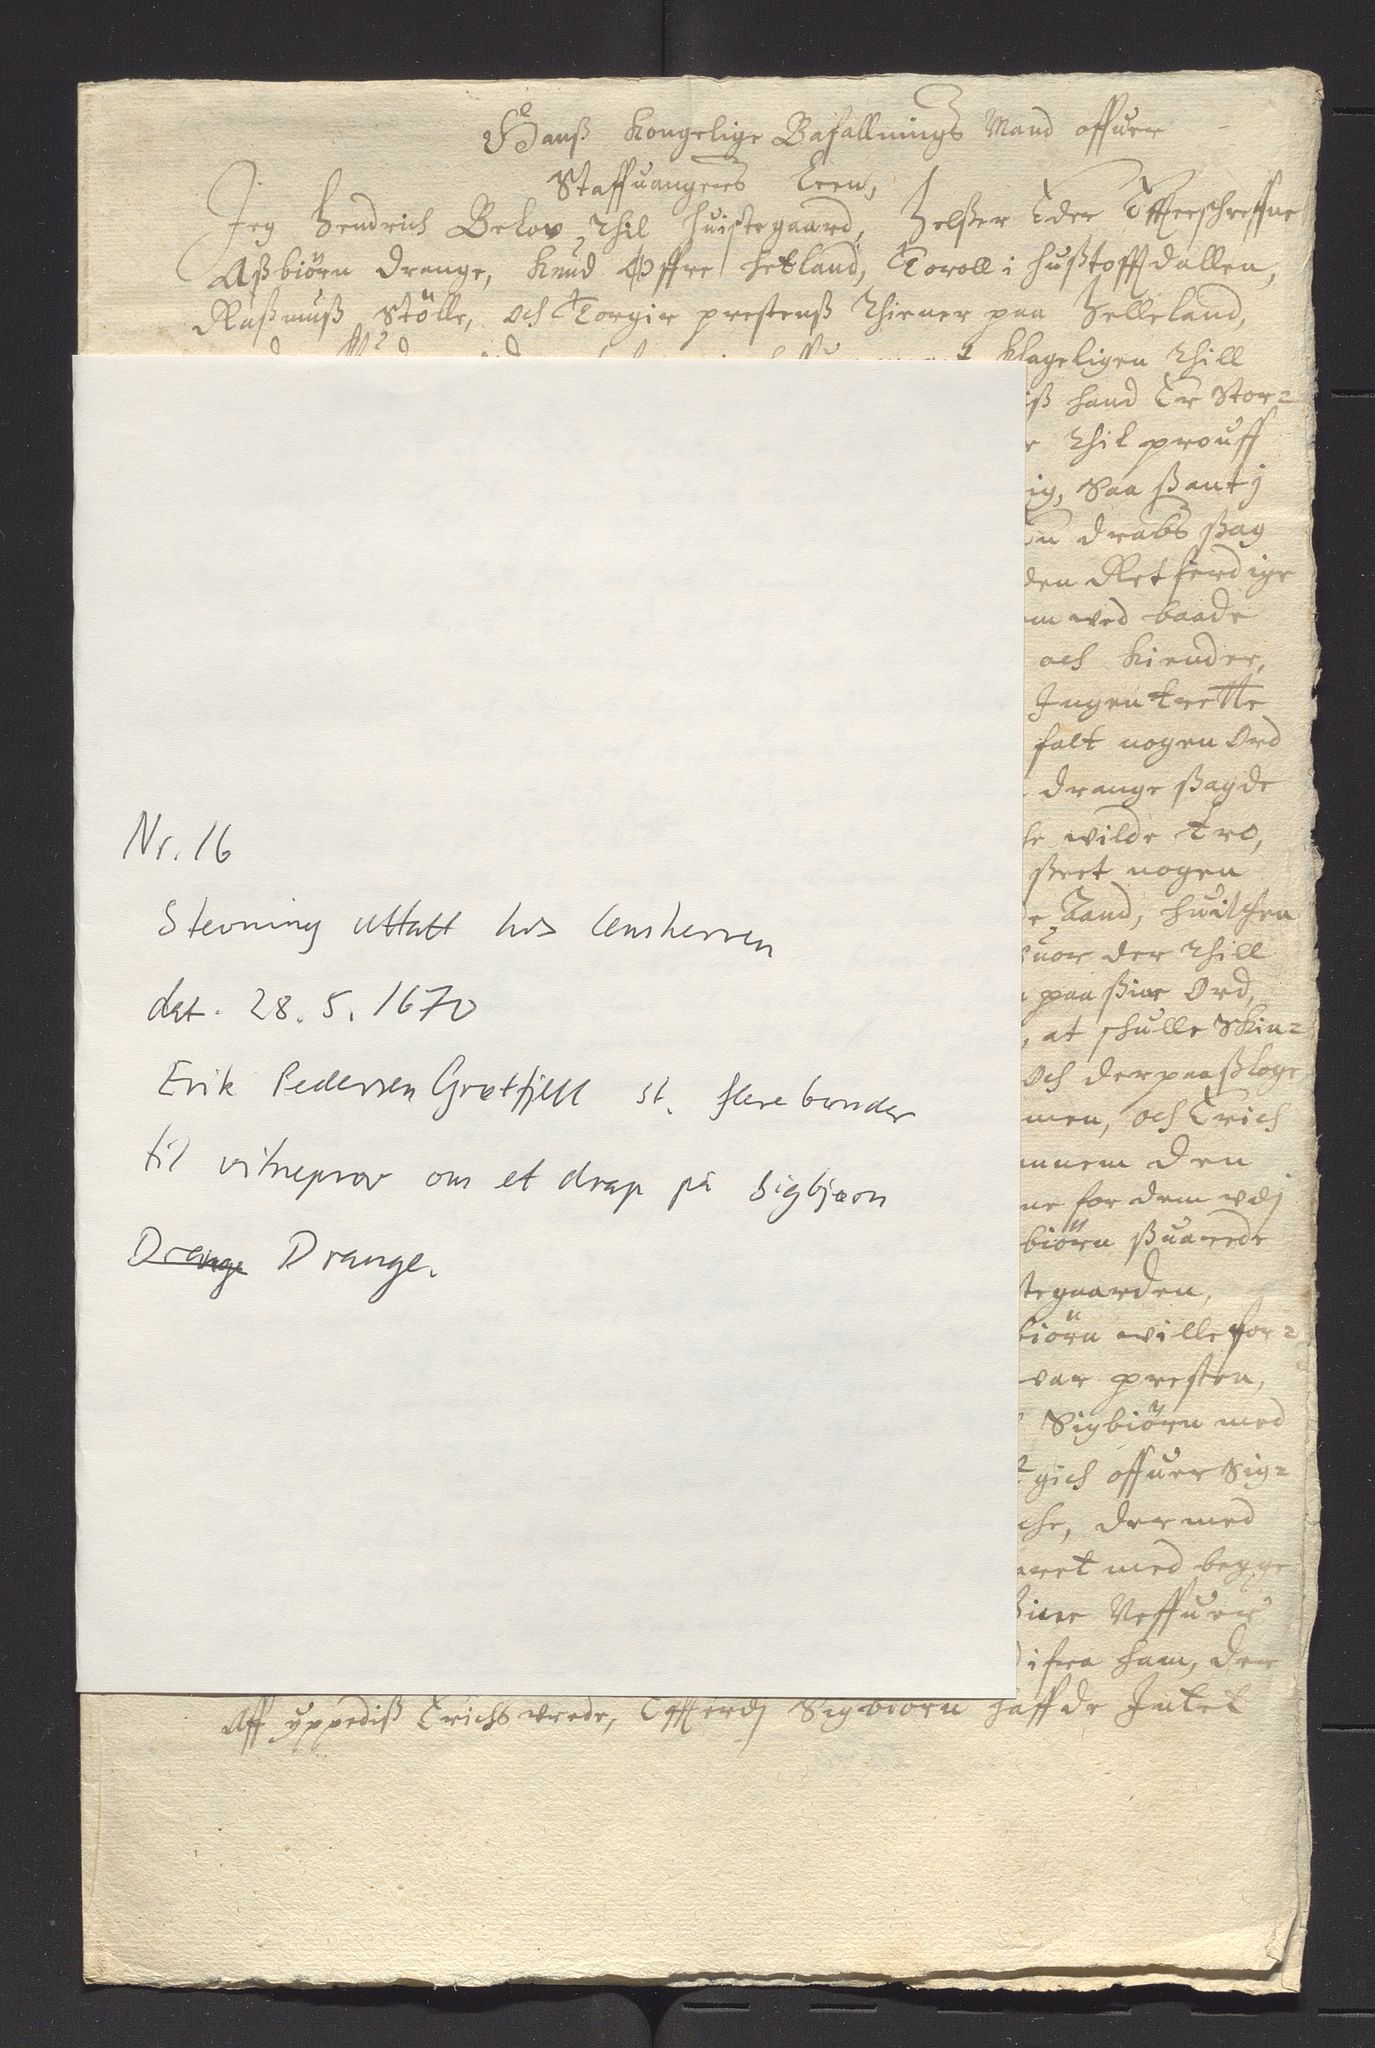 Hanß Kongelige Bafallnings Mand offuer
Staffuangers Leen,
Jeg Hendrich Below, thil huistegaard, Helßer Eder Effterschreffne
Aßbiörn Drange, Knud Øffre hetland, Toroll i hußtofftdallen,
Raßmuß Stölle, och Torgir prestenß thiener paa Helleland,
klageligen thill
iß hand Er Stor=
r thil prouff
ig, Saa ßantj
en drabs ßag
den Retferdige
m wed baade
och kiender,
Ingen trette
falt nogen Ord
drange ßagde
he wilde tro,
ßeet nogen
de Land, huilchen
suor der thill
paa ßine Ord,
, at schulle Skin=
Och der paa ßloge
men, och Erich
nnem den
ne for dem wdj
biörn ßuarede
stegaarden,
biörn wille for=
war presten,
Sigbiörn med
gich offuer Sig=
che, der med
aret med begge
ßine Neffuer
ifra ham, der
Aff yppediß Erichs wrede, Effterdj Sigbiörn haffde Intet
Nr. 16
Stevning uttatt hos lensherren
dat. 28. 5. 1670
Erik Pedersen Grøtfjell st. flere bønder
til vitneprov om et drap på Sigbjørn
Drange Drange.